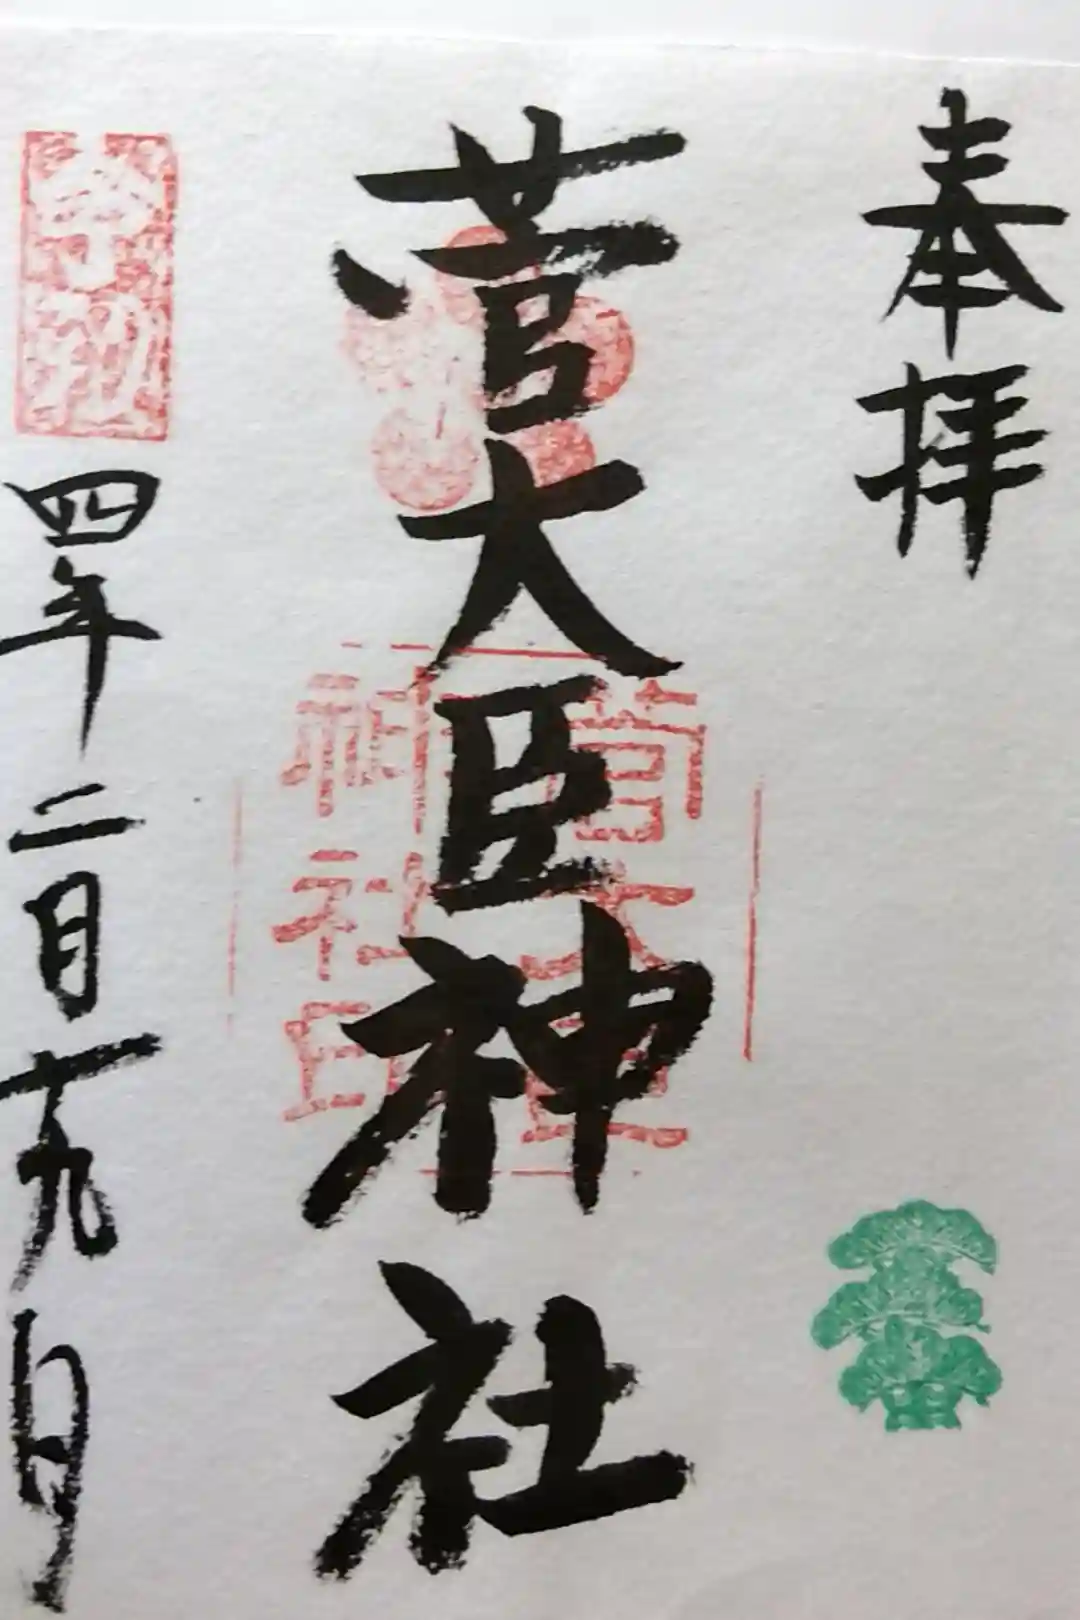 奉拝
菅大臣神社
菅大臣
神社印
令和
四年二月十九日